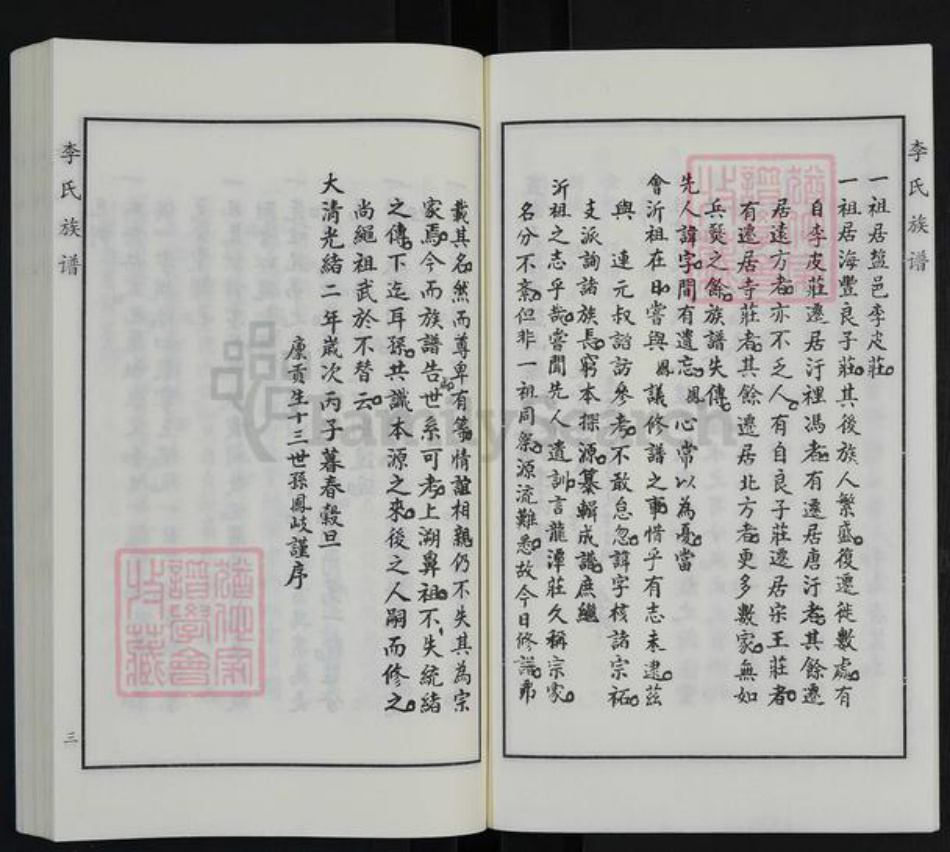 李氏族谱
一祖居盐邑李皮莊。
一祖居海豐良子莊。其後族人繁盛。復遷徙數處。有
自李皮莊遷居汙裡馮者。有遷居唐汙者。其餘遷
居遠方者。亦不乏人。有自良子莊遷居宋王莊者。
有遷居寺莊者。其餘遷居北方者。更多數家。無如
兵燹之餘。族譜失傳。
先人諱字。間有遺忘。鳳心常以為憂。當
會沂祖在日。嘗與鳳議修譜之事。惜乎有志未逮。茲
與連元叔諮訪參考。不敢怠忽。諱字核諸宗祏。
支派詢諸族長。窮本探源。纂輯成譜。庶繼
沂祖之志乎哉。嘗聞先人遺訓言。龍潭莊久稱宗家。
名分不紊。但非一祖同祭。源流難悉。故今日修譜。弗
載其名。然而尊卑有等。情誼相親。仍不失其為宗
家焉。今而族譜告世系可考。上溯鼻祖。不失統緒
之傳。下迄耳孫。共識本源之來。後之人嗣而修之。
尚繩祖武於不替云。
大清光緒二年歲次丙子暮春穀旦
廩貢生十三世孫鳳岐謹序
李氏族谱
三
FamilySearch